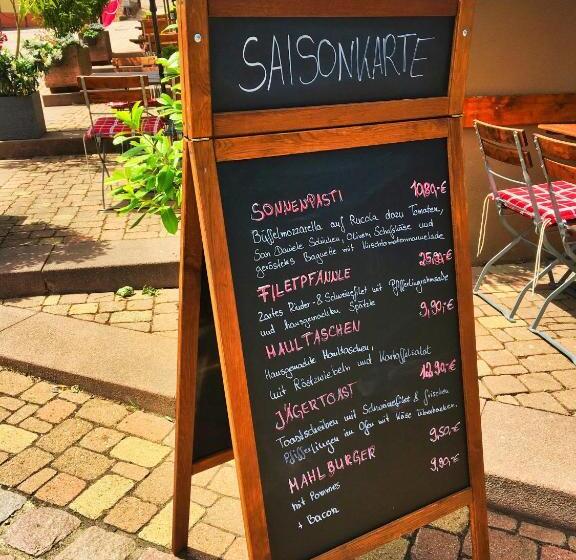 SAISONKARTE
SONNENPASTI 10,80,-€
Büffelmozzarella auf Rucola dazu Tomaten,
San Daniele Schinken, Oliven, Schafskäse und
geröstetes Baguette mit Kirschtomatenmarmelade
FILETPFANNLE 25,80,-€
Zartes Rinder- & Schweinefilet mit Pfifferlingrahmsoße
und hausgemachten Spätzle
MAULTASCHEN 9,90,-€
Hausgemachte Maultaschen,
mit Röstzwiebeln und Kartoffelsalat
JÄGERTOAST 12,90,-€
Toastscheiben mit Schweinefilet & frischen
Pfifferlingen im Ofen mit Käse überbacken.
MAHLBURGER 9,50,-€
mit Pommes
+ Bacon 9,90,-€